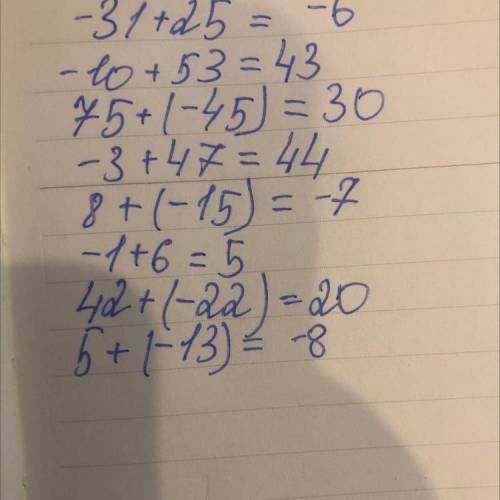 -31+25 = -6
-10+53=43
75+(-45)=30
-3+47=44
8+(-15)=-7
-1+6=5
42+(-22)=20
5+(-13)= -8